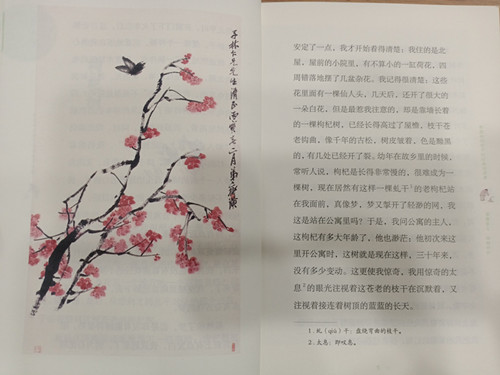 变定了一点。我才开始看得清楚：我住的是北
屋，屋前的小院里，有不算小的一缸荷花，四
周错落地摆了几盆杂花。我记得很清楚：这些
花里面有一棵仙人头，几天后，还开了很大的
一朵白花，但是最惹我注意的，却是靠墙长着
的一棵枸杞树，已经长得高过了屋檐，枝干苍
老钩曲，像千年的古松，树皮皱着，色是黝黑
的，有几处已经开了裂。幼年在故乡里的时候，
常听人说，枸杞是长得非常慢的，很难成为一
棵树，现在居然有这样一棵虬干¹的老枸杞站
在我面前，真像梦，梦又掣开了轻渺的网，我
这是站在公寓里吗？于是，我问公寓的主人，
这枸杞有多大年龄了，他也渺茫：他初次来这
里开公寓时，这树就是现在这样，三十年来，
没有多少变动。这更使我惊奇，我用惊奇的太
息²的眼光注视着这苍老的枝干在沉默着，又
注视着接连着树顶的蓝蓝的长天。
1. 虬（qiú）干：盘绕弯曲的枝干。
2. 太息：即叹息。